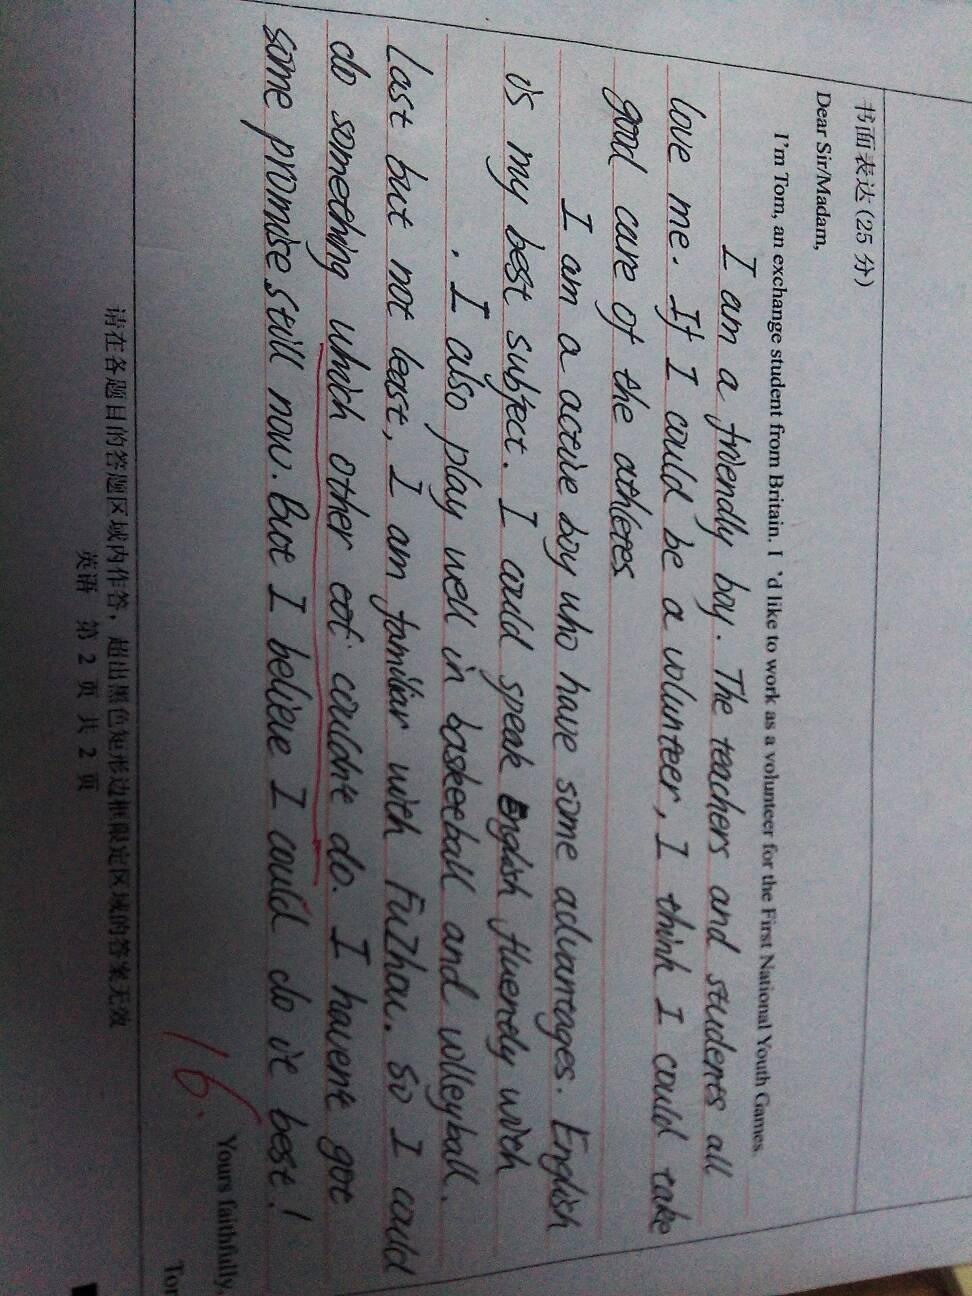 书面表达(25 分)
Dear Sir/Madam,
I'm Tom, an exchange student from Britain. I 'd like to work as a volunteer for the First National Youth Games.
I am a friendly boy. The teachers and students all
love me. If I could be a volunteer, I think I could take
good care of the athletes
I am a active boy who have some advantages. English
is my best subject. I could speak English fluently with
. I also play well in basketball and volleyball.
Last but not least, I am familiar with FuZhou. So I could
do something which other couldn't do. I haven't got
some promise still now. But I believe I could do it best!
16.
Yours faithfully,
Tom
请在各题目的答题区域内作答，超出黑色矩形边框限定区域的答案无效
英语 第 2 页 共 2 页